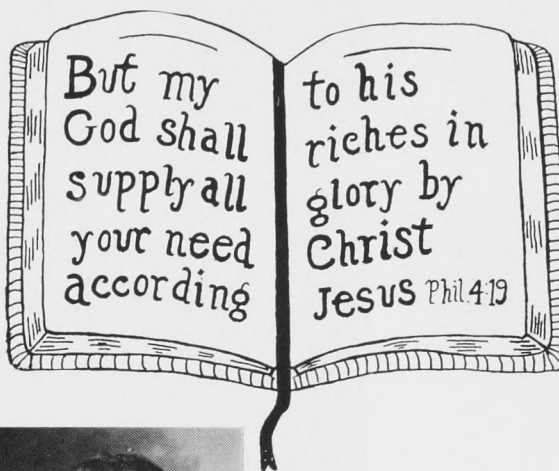 But my
God shall
supply all
your need
according
to his
riches in
glory by
Christ
Jesus Phil. 4:19